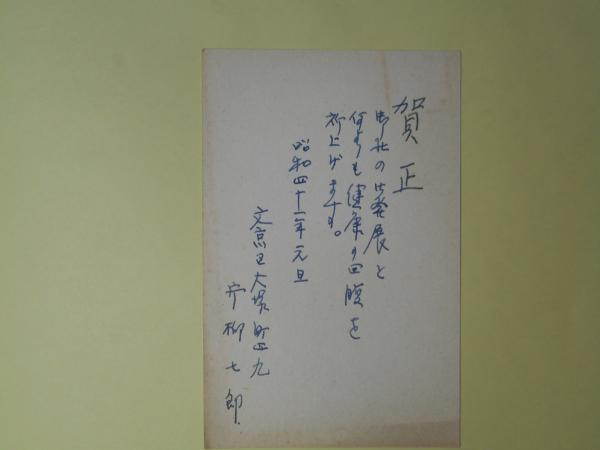 賀正
御社の御発展と
何よりも健康の回腹を
祈上げます。
昭和四十一年元旦
文京区大塚町四九
柳七郎